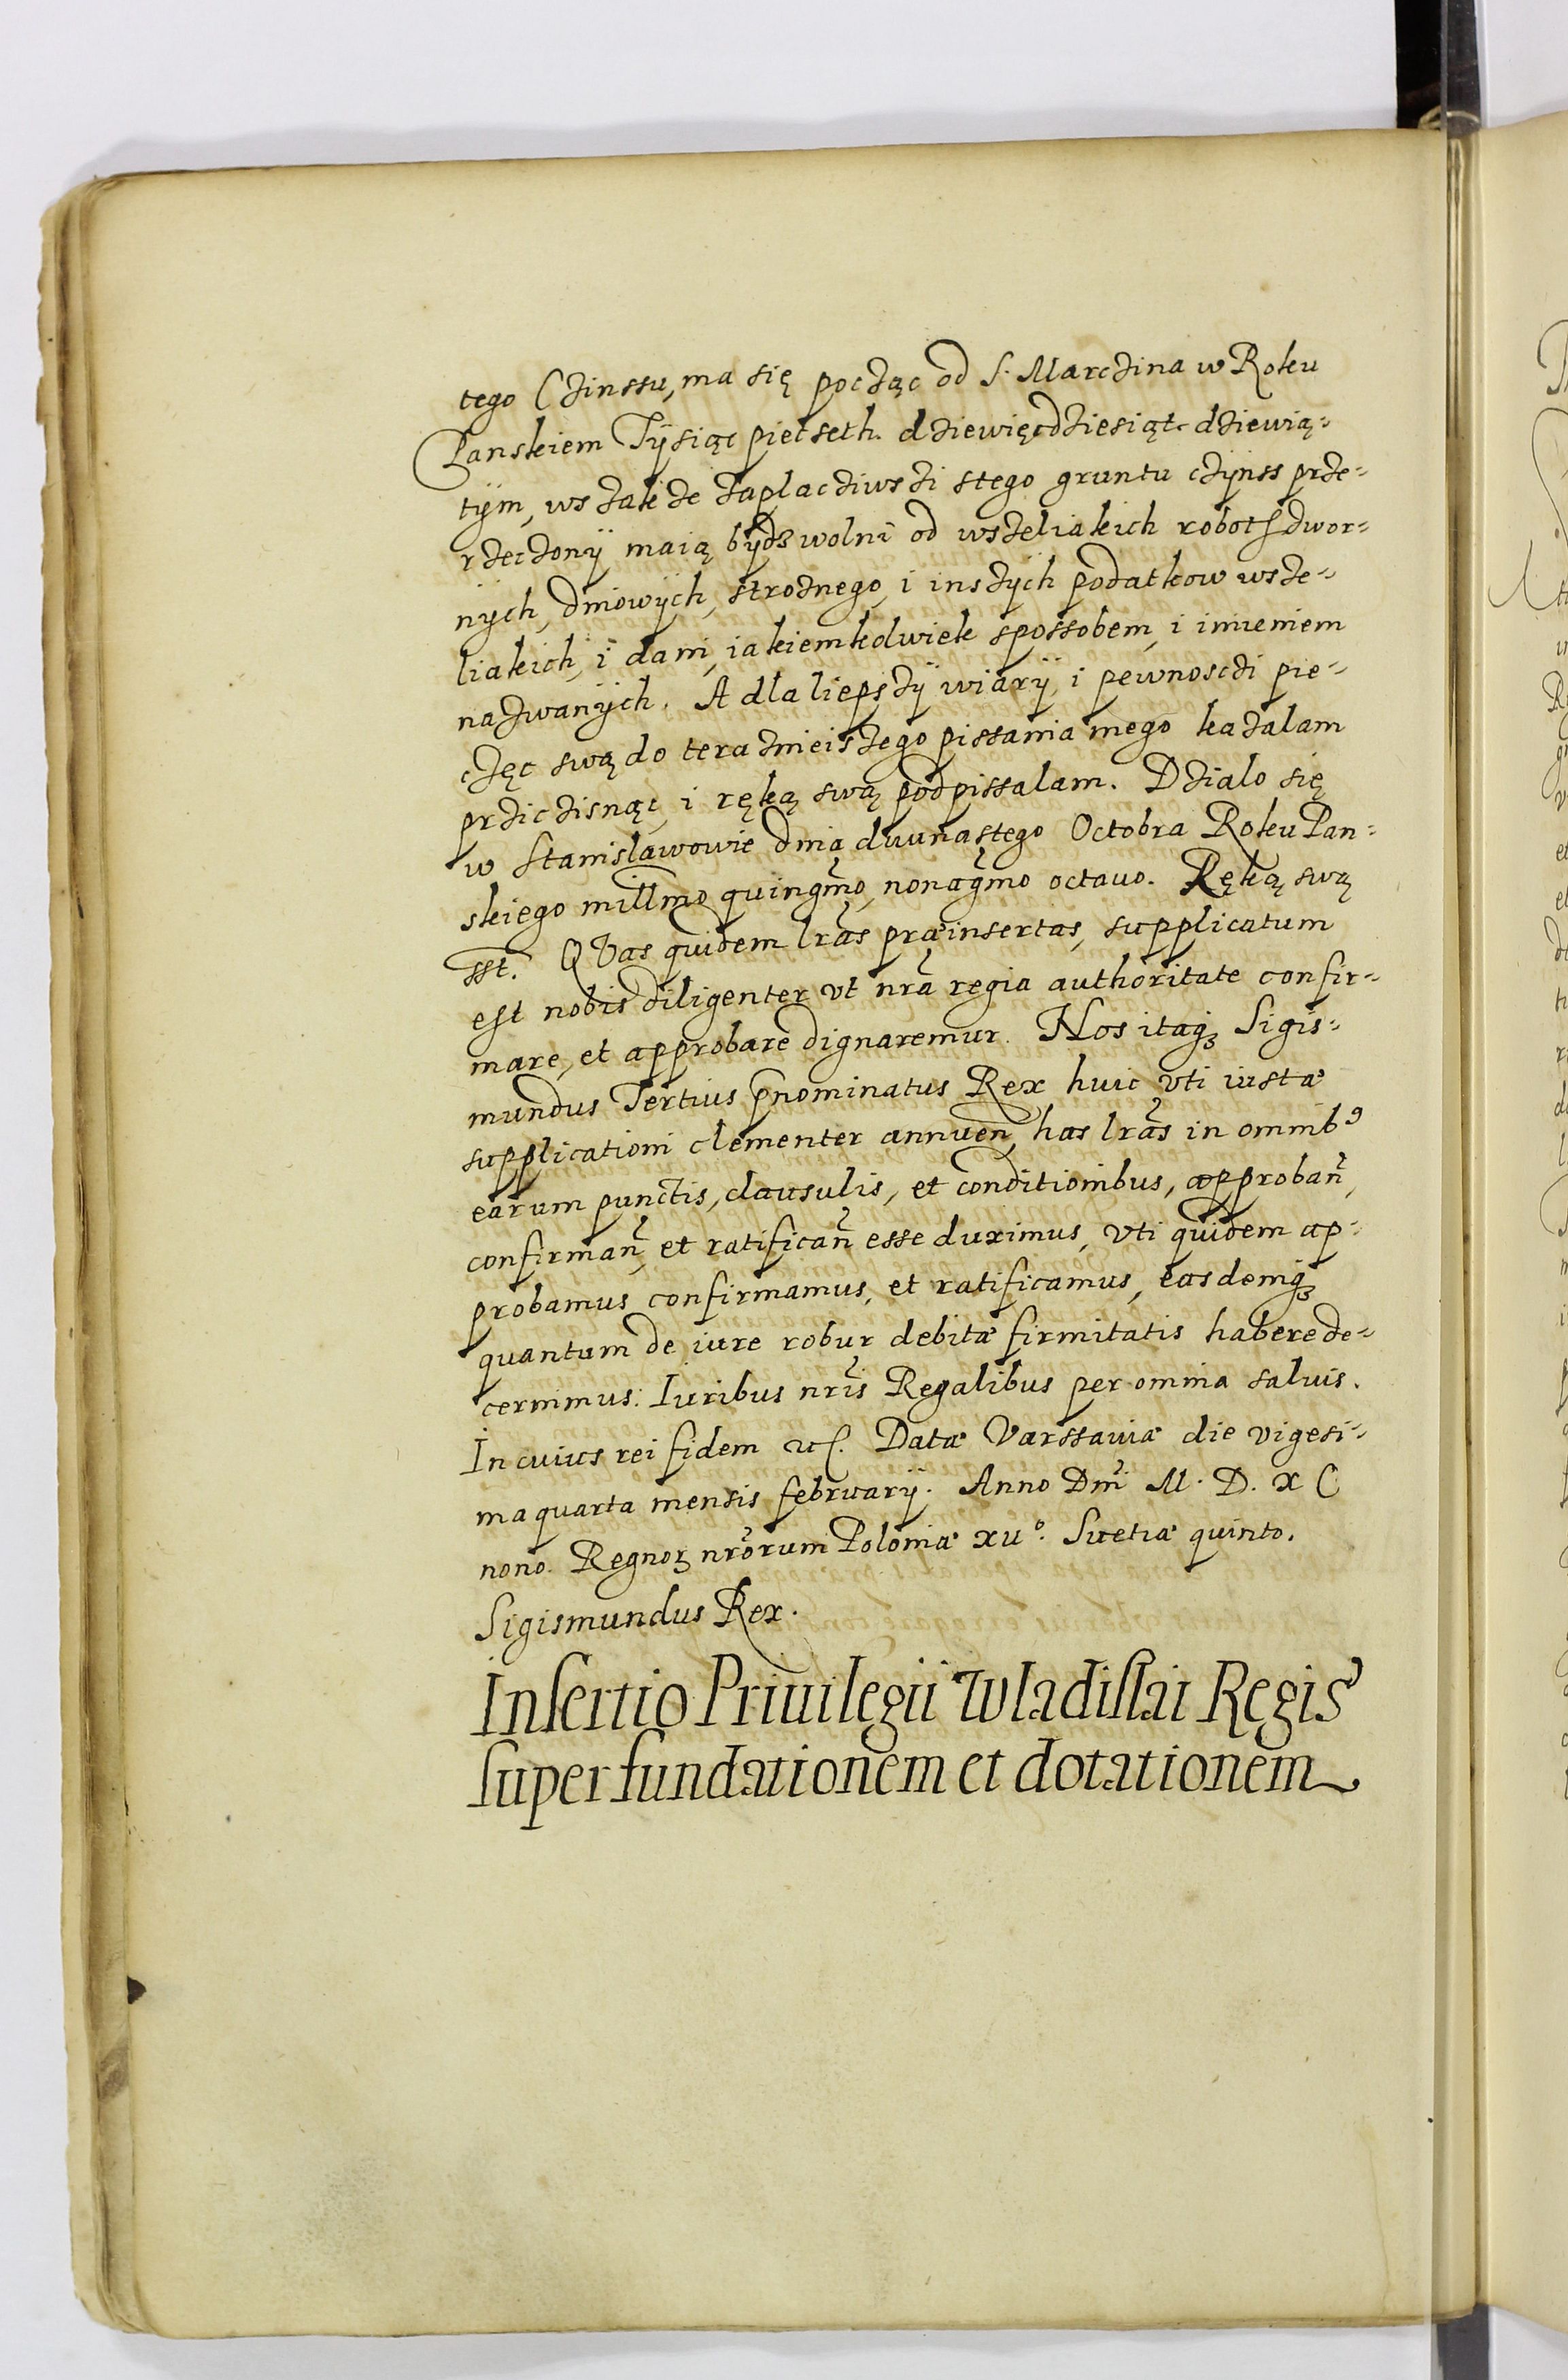 tego Czinssu, ma się poczząc od S. Marczina w Roku
Panskiem Tÿsiąc piecseth dziewięcdziesiąt dziewią-
tÿm, wszakze zaplacziwszi stego gruntu czÿnss prze-
rzeczonÿ maią bÿdz wolni od wszeliakich robot dwor-
nÿch, dniowÿch, stroznego, i inszÿch podatkow wsze-
liakich, i dani, iakiemkolwiek spossobem, i imieniem
nazwanÿch. A dla liepszÿ wiarÿ, i pewnosczi pie-
częc swą do teraznieiszego pissania mego kazalam
przicisnąc, i ręką swą podpissalam. Dzialo się
w Stanislawowie dnia dwunastego Octobra Roku Pan-
skiego millmo quingmo, nonagmo octauo. Ręką swą
sst. QVas quidem lras præinsertas, supplicatum
est nobis diligenter vt nra regia authoritate confir-
mare, et approbare dignaremur. Nos itaqꝫ Sigis-
mundus Tertius pnominatus Rex huic vti iustæ
supplicationi clementer annuen, has lras in omnibꝰ
earum punctis, clausulis, et conditionibus, approban,
confirman, et ratifican esse duximus, vti quidem ap-
probamus confirmamus, et ratificamus, easdemqꝫ
quantum de iure robur debitæ firmitatis habere de-
cernimus: Iuribus nris Regalibus per omnia saluis.
In cuius rei fidem etc. Datæ Varssauiæ die vigesi-
ma quarta mensis februarÿ. Anno Dni M. D. XC
nono. Regnoꝝ nrorum Poloniæ xuº. Suetiæ quinto.
Sigismundus Rex.
Insertio Priuilegii Wladislai Regis
super fundationem et dotationem